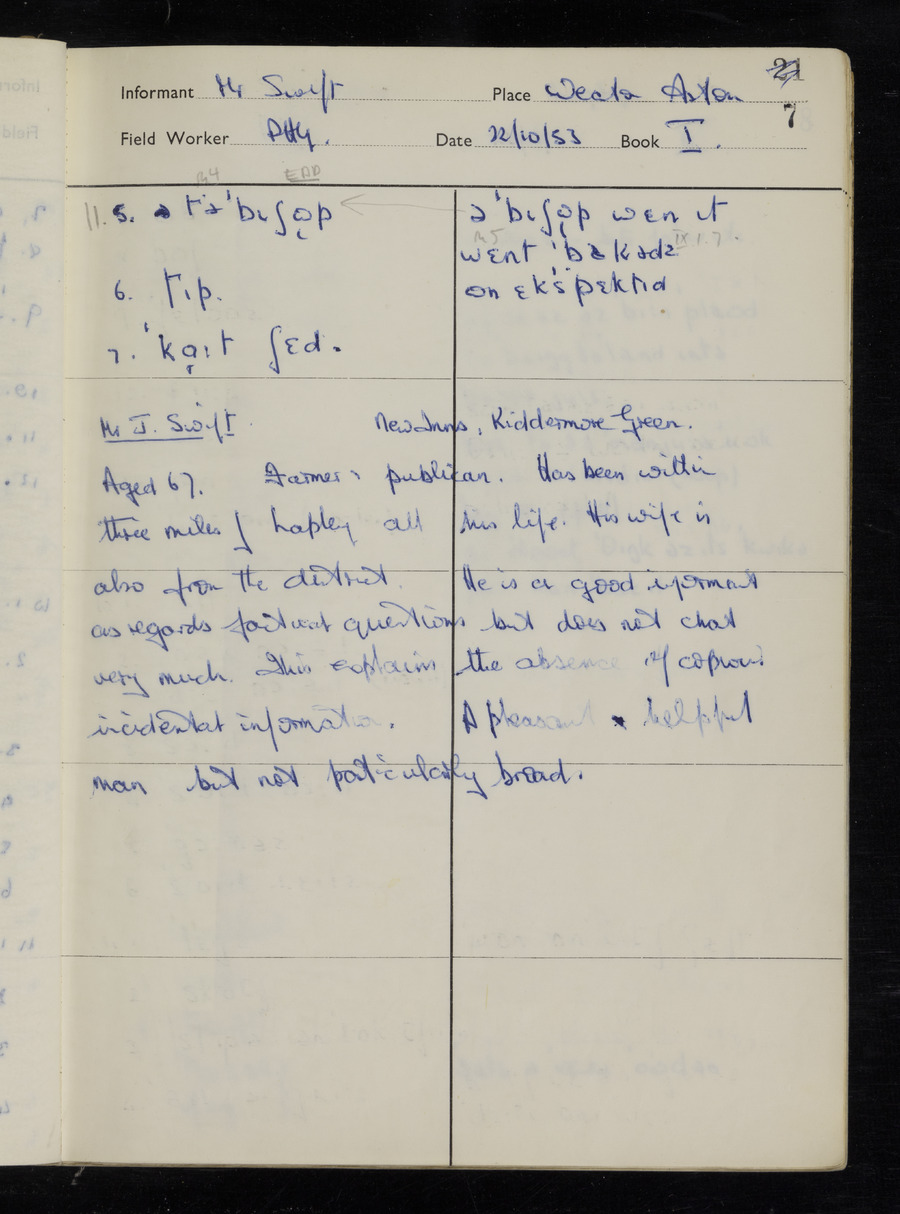 21
Informant Mr Swift Place Weston Aston
7
Field Worker PHG. Date 22/10/53 Book I.
R4 EDD
11. 5. tə'bɩʃɒp ə'bɩʃɒp wen ɩt
wɛnt 'bakədz IX.1.7.
6. tɩp. ɒn ɛk'spɛktɩd
7. 'ka:t ʃɛd.
Mr J. Swift New Inns, Kiddermore Green.
Aged 67. Farmer & publican. Has been within
three miles of Lapley all his life. His wife is
also from the district. He is a good informant
as regards factual questions but does not chat
very much. This explains the absence of copious
incidental information. A pleasant & helpful
man but not particularly broad.